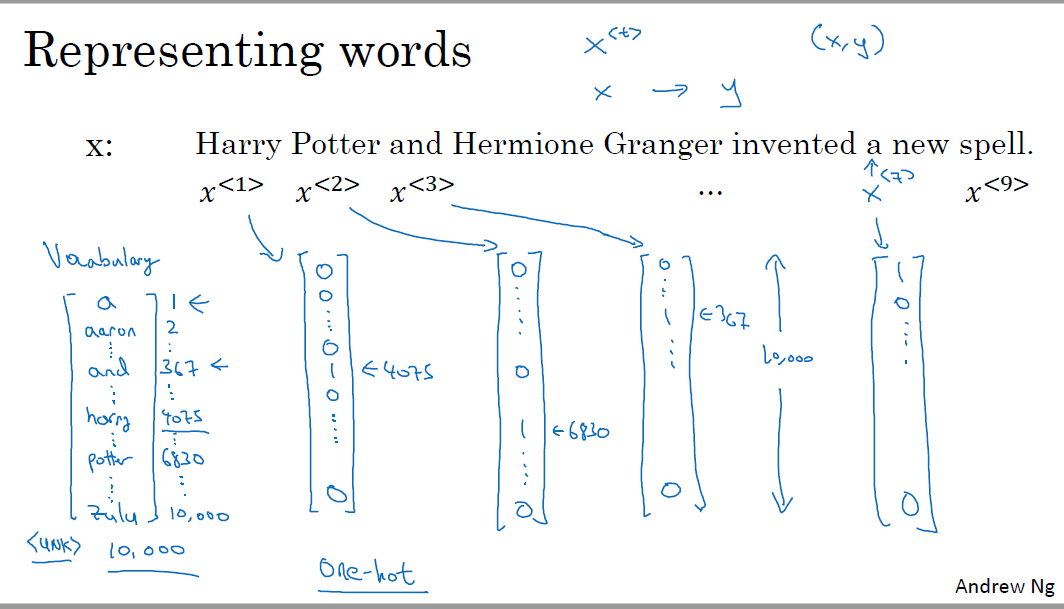 Representing words
x<t> (x,y)
x → y
x: Harry Potter and Hermione Granger invented a new spell.
x<1> x<2> x<3> ... x<7> x<9>
Vocabulary
a 1 ←
aaron 2
⋮ ⋮
and 367 ←
⋮ ⋮
harry 4075
⋮ ⋮
potter 6830
⋮ ⋮
zulu 10,000
<UNK> 10,000
0
0
⋮
0
1 ← 4075
0
⋮
0
0
⋮
0
1 ← 6830
⋮
0
0
⋮
1 ← 367
⋮
0
10,000
1
0
⋮
0
One-hot
Andrew Ng